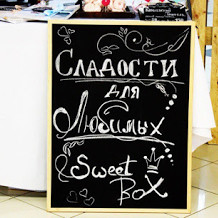 Сладости
для
Любимых
Sweet
Box